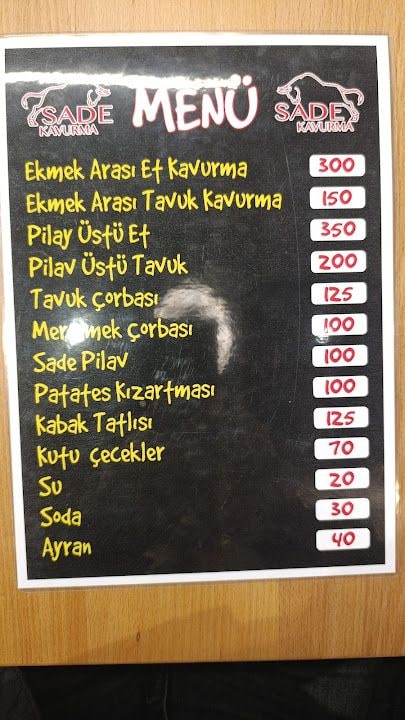 SADE
KAVURMA
MENÜ
SADE
KAVURMA
Ekmek Arası Et Kavurma 300
Ekmek Arası Tavuk Kavurma 150
Pilav Üstü Et 350
Pilav Üstü Tavuk 200
Tavuk Çorbası 125
Mercimek Çorbası 100
Sade Pilav 100
Patates Kızartması 100
Kabak Tatlısı 125
Kutu çecekler 70
Su 20
Soda 30
Ayran 40